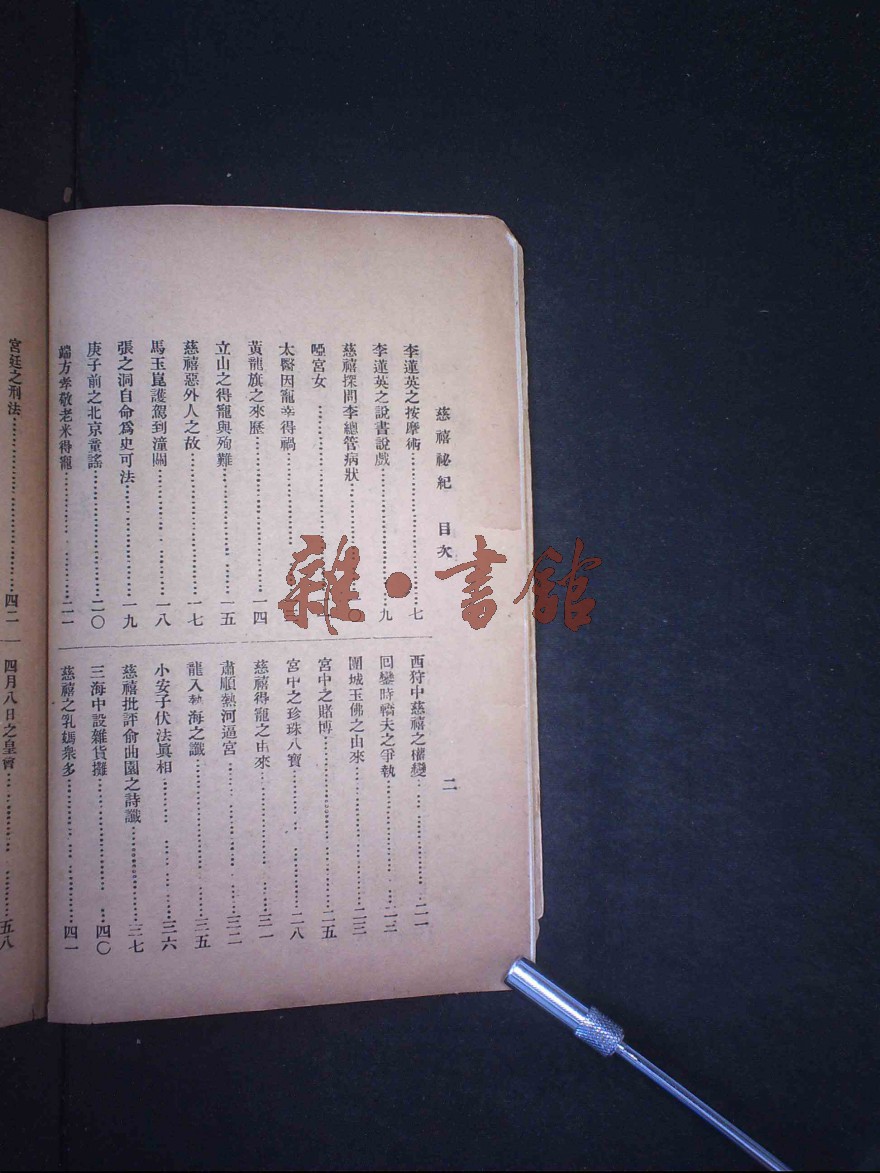 慈禧祕紀 目次
二
李蓮英之按摩術……七
李蓮英之說書說戲……九
慈禧探問李總管病狀……
啞宮女……
太醫因寵幸得禍……
黃龍旗之來歷……一四
立山之得寵與殉難……一五
慈禧惡外人之故……一七
馬玉崑護駕到潼關……一八
張之洞自命爲史可法……一九
庚子前之北京童謠……二〇
端方孝敬老米得寵……二一
西狩中慈禧之權變……二一
回鑾時轎夫之爭執……二三
團城玉佛之由來……二三
宮中之賭博……二五
宮中之珍珠八寶……二八
慈禧得寵之由來……三一
肅順熱河逼宮……三二
龍入熱海之讖……三五
小安子伏法眞相……三六
慈禧批評俞曲園之詩讖……三七
三海中設雜貨攤……四〇
慈禧之乳媼衆多……四一
宮廷之刑法……四二
四月八日之皇會……五八
雜·書館